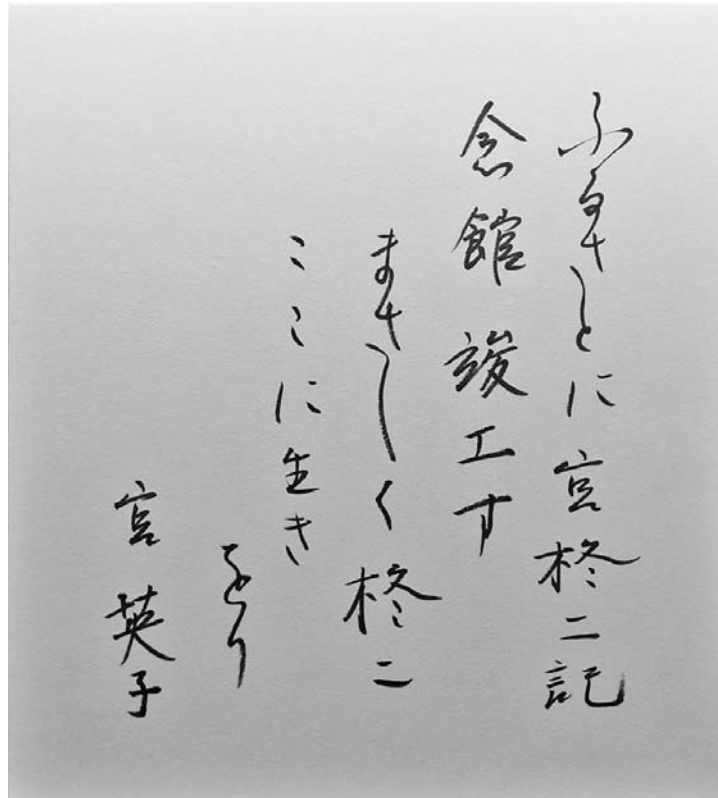 ふるさとに宮柊二記
念館竣工す
まさしく柊二
ここに生き
をり
宮英子